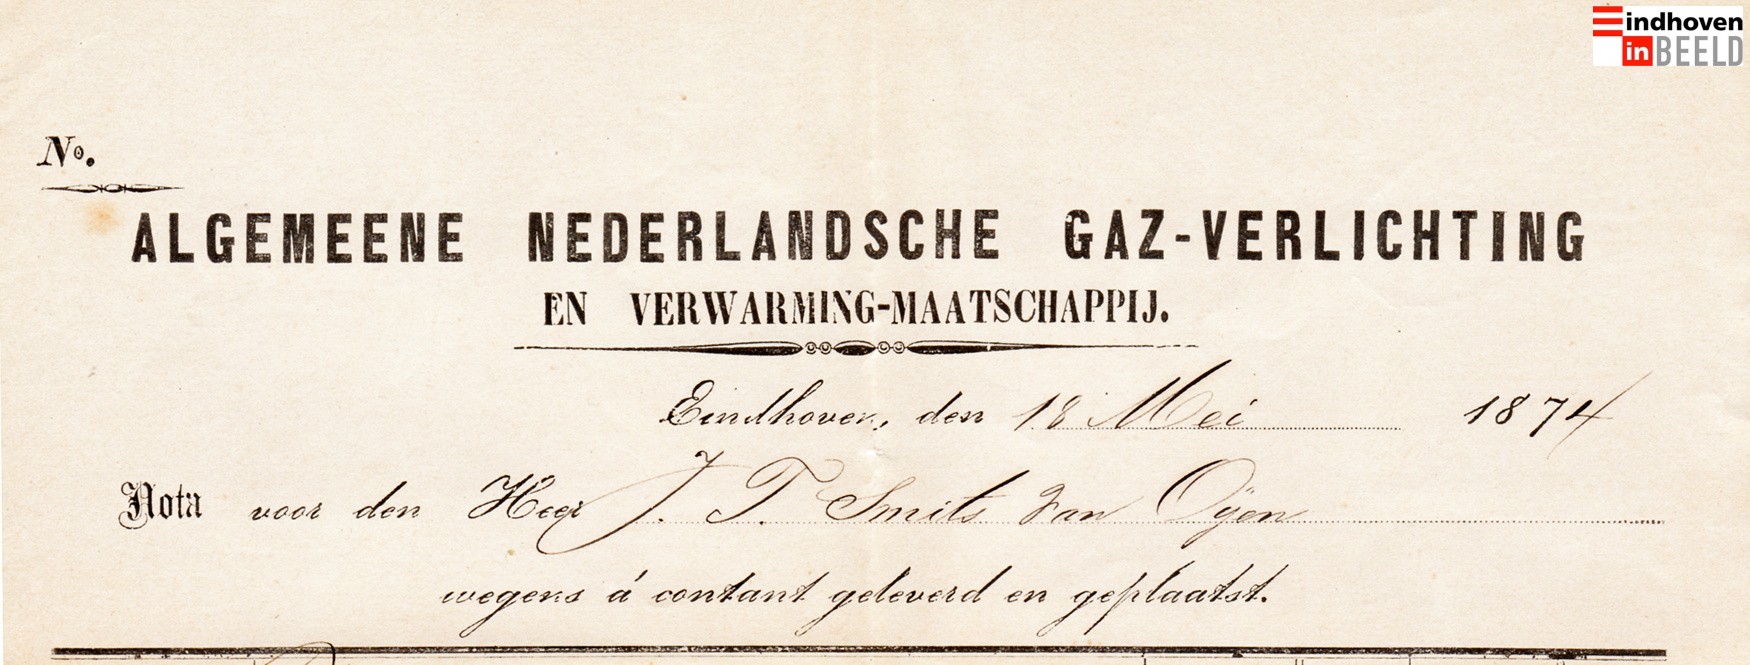 Eindhoven
in BEELD
No.
ALGEMEENE NEDERLANDSCHE GAZ-VERLICHTING
EN VERWARMING-MAATSCHAPPIJ.
Eindhoven, den 18 Mei 1874
Nota voor den Heer J. T. Smits van Oyen
wegens á contant geleverd en geplaatst.